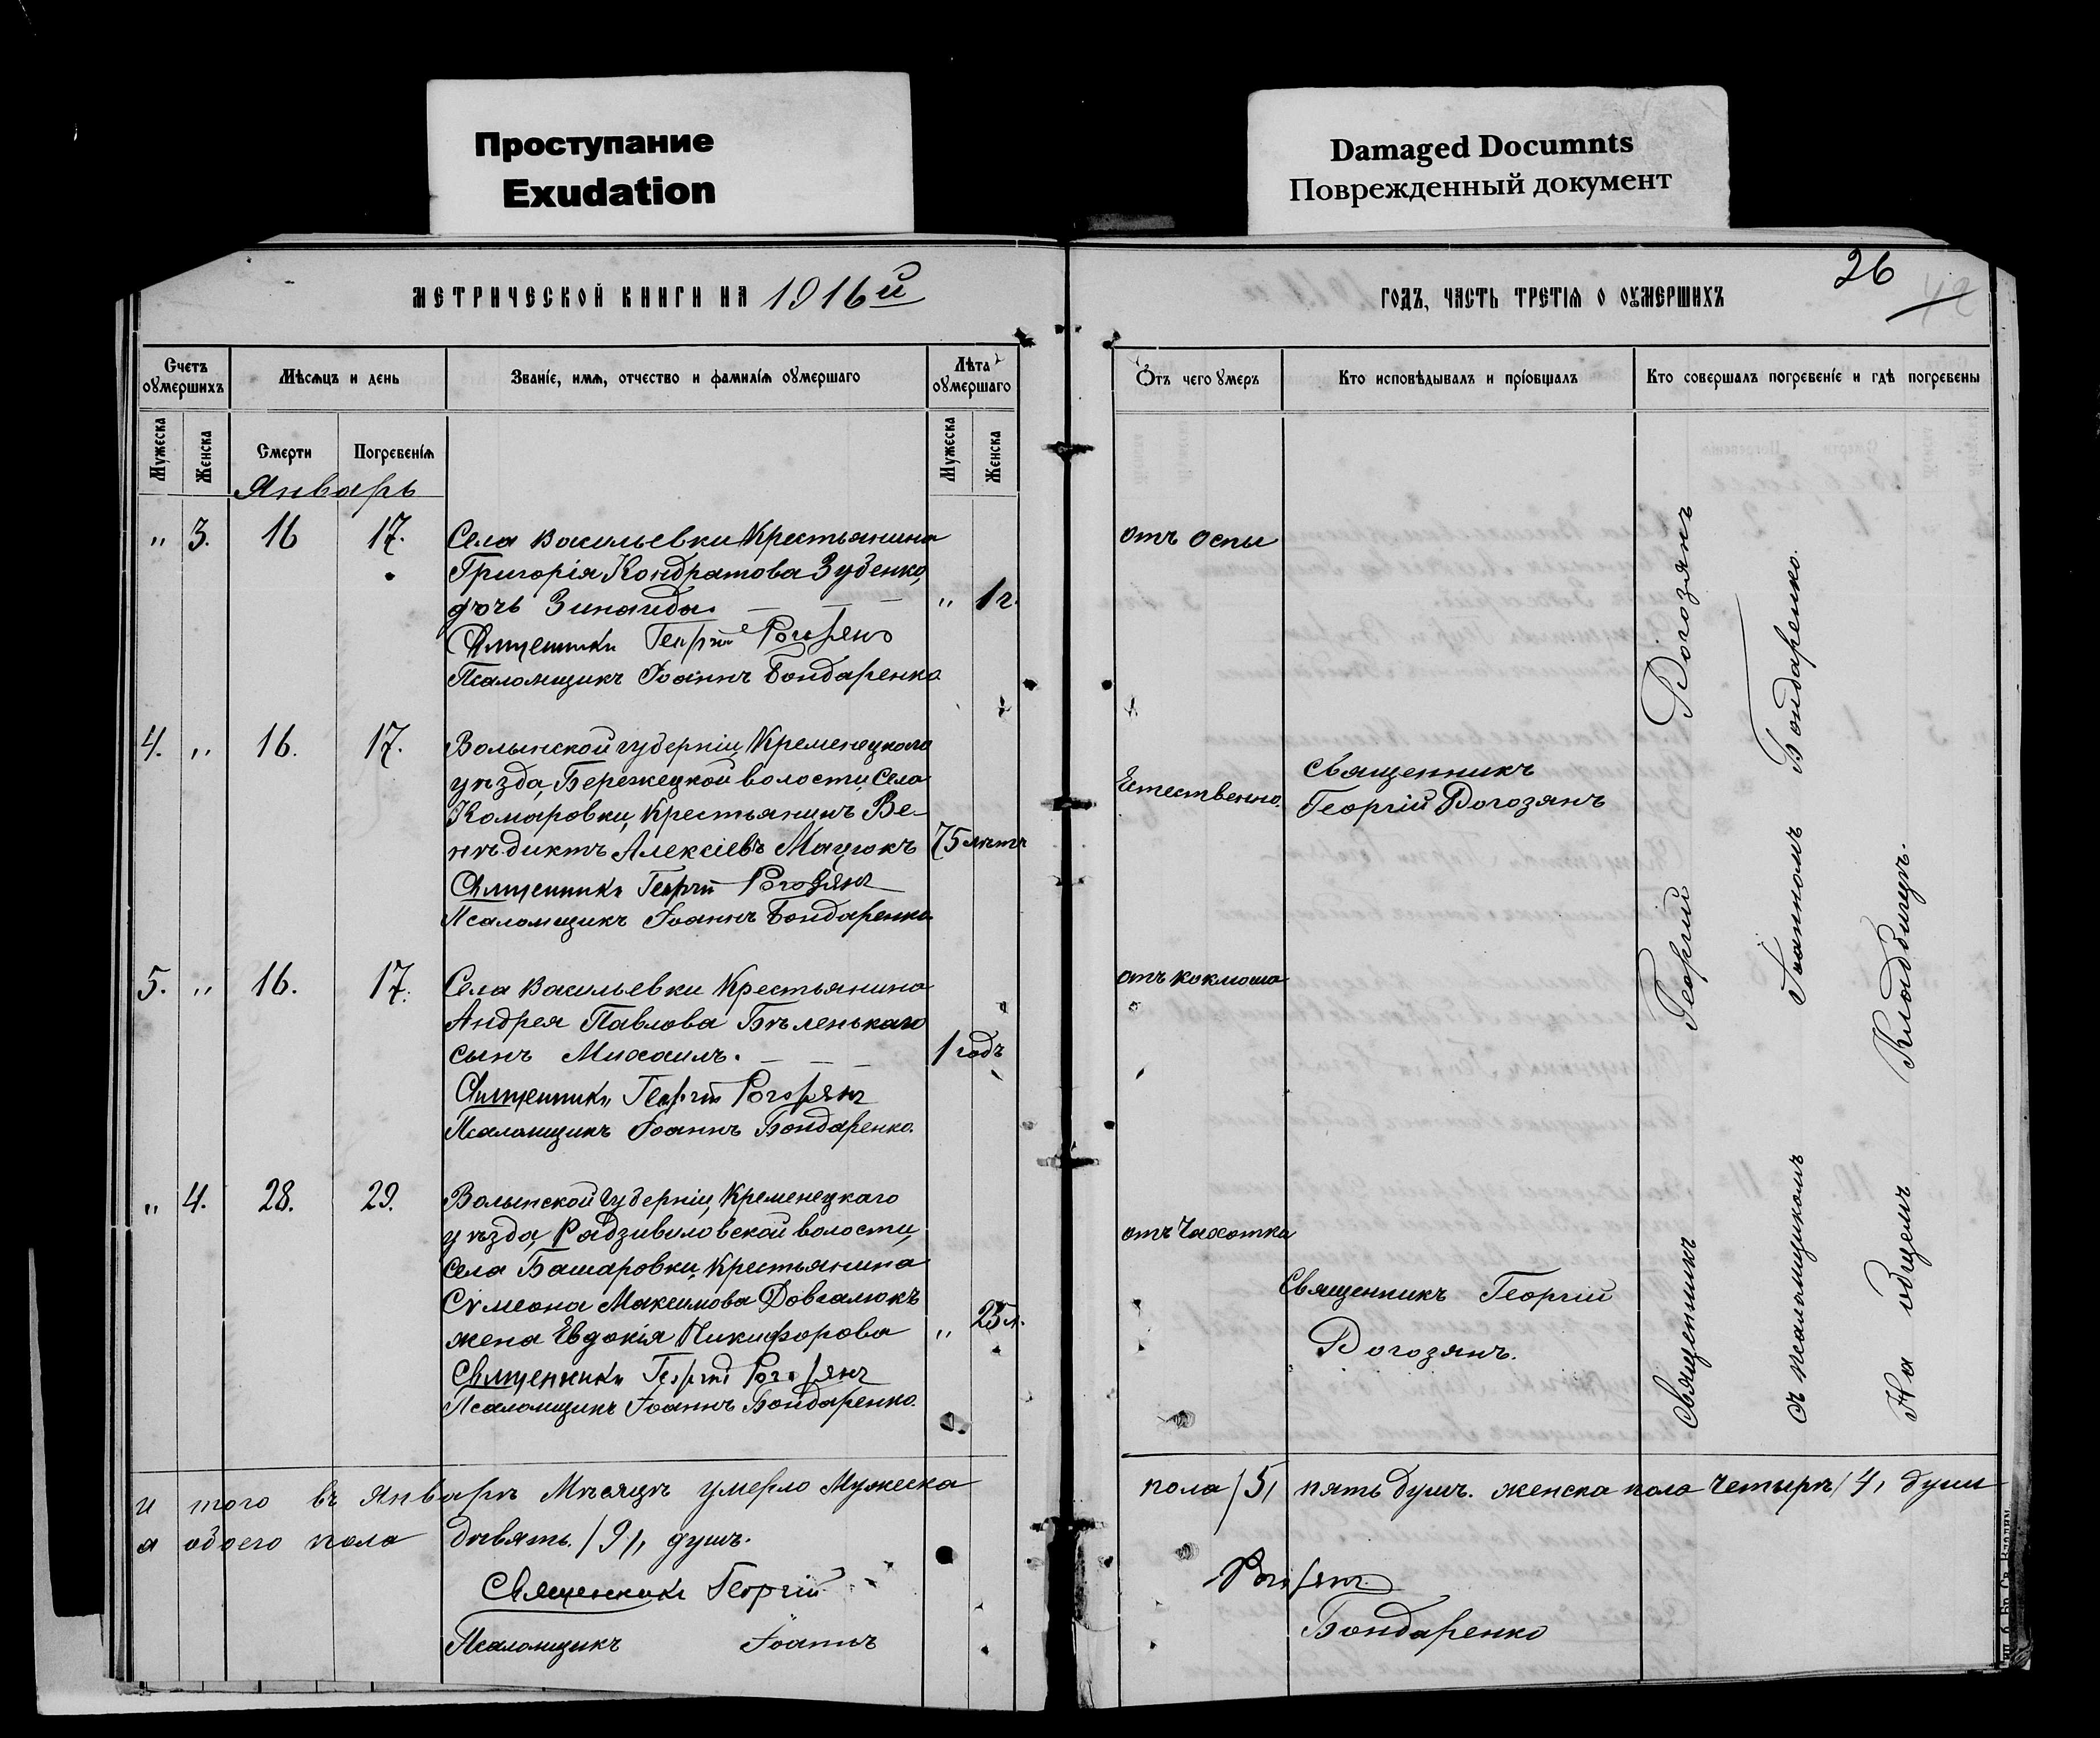 Проступание
Exudation
Damaged Documnts
Поврежденный документ
МЕТРИЧЕСКОЙ КНИГИ НА 1916й
Счетъ оумершихъ
Мѣсяцъ и день
Званіе, имя, отчество и фамилія оумершаго
Лѣта оумершаго
Мужеска
Женска
Смерти
Погребенія
Мужеска
Женска
Январь
" 3. 16 17. Села Васильевки Крестьянина
Григорія Кондратова Зубенко,
дочь Зинаида. — — — " 1 г.
Священникъ Георгій Рогозянъ
Псаломщикъ Іоаннъ Бондаренко
4. " 16. 17. Волынской губерніи, Кременецкаго
уѣзда, Бережецкой волости, села
Комаровки, Крестьянинъ Ве-
нѣдиктъ Алексіевъ Мацюкъ 75 лѣтъ
Священникъ Георгій Рогозянъ
Псаломщикъ Іоаннъ Бондаренко
5. " 16. 17. Села Васильевки Крестьянина
Андрея Павлова Бѣленькаго
сынъ Михаилъ. — — — 1 годъ
Священникъ Георгій Рогозянъ
Псаломщикъ Іоаннъ Бондаренко.
" 4. 28. 29. Волынской губерніи, Кременецкаго
уѣзда, Радзивиловской волости,
села Башаровки, Крестьянина
Сѵмеона Максимова Довгалюкъ
жена Евдокія Никифорова " 25 л.
Священникъ Георгій Рогозянъ
Псаломщикъ Іоаннъ Бондаренко.
и того въ Январѣ Мѣсяцѣ умерло Мужеска
а обоего пола дѣвять /9/, душъ.
Священникъ Георгій
Псаломщикъ Іоаннъ
26
42
ГОДЪ, ЧАСТЬ ТРЕТІЯ О ОУМЕРШИХЪ
Отъ чего умеръ
Кто исповѣдывалъ и пріобщалъ
Кто совершалъ погребеніе и гдѣ погребены
отъ оспы
Естественно.
Священникъ
Георгій Рогозянъ
отъ коклюша
отъ Чахотка
Священникъ Георгій
Рогозянъ.
Священникъ Георгій Рогозянъ
съ псаломщикомъ Іоанномъ Бондаренко.
На общемъ Кладбищѣ.
пола /5/ пять душъ. женска пола четырѣ /4/, души
Рогозянъ.
Бондаренко